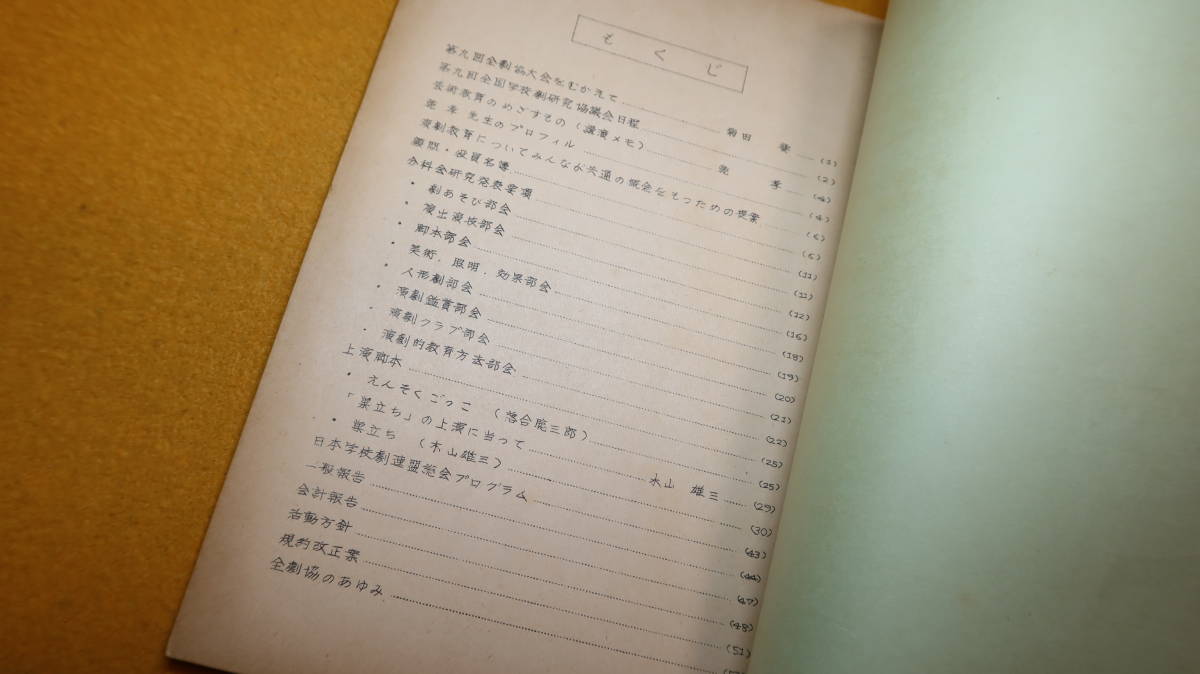 もくじ
第九回全劇協大会をむかえて 菊田 (1)
第九回全国学校劇研究協議会日程 (2)
芸術教育のめざすもの（講演メモ） 孝 (4)
孝 先生のプロフィル (4)
演劇教育についてみんなが共通の概念をもつための提案 (6)
顧問・役員名簿 (6)
分科会研究発表要項 (11)
・劇あそび部会 (11)
・演出演技部会 (12)
・脚本部会 (16)
・美術．照明．効果部会 (18)
・人形劇部会 (19)
・演劇鑑賞部会 (20)
・演劇クラブ部会 (21)
・演劇的教育方法部会 (22)
上演脚本 (25)
・えんそくごっこ （落合聰三郎） (25)
「巣立ち」の上演に当って 木山 雄三 (29)
・巣立ち （木山雄三） (30)
日本学校劇連盟総会プログラム (43)
一般報告 (44)
会計報告 (47)
活動方針 (48)
規約改正案 (51)
全劇協のあゆみ